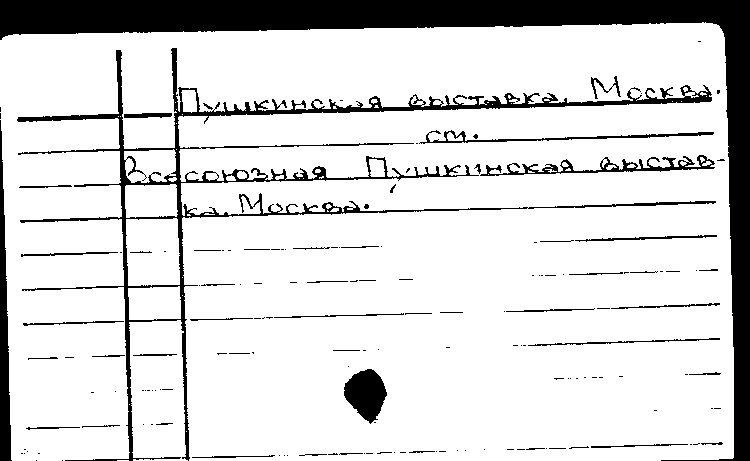 Пушкинская выставка. Москва.
ст.
Всесоюзная Пушкинская выстав-
ка. Москва.